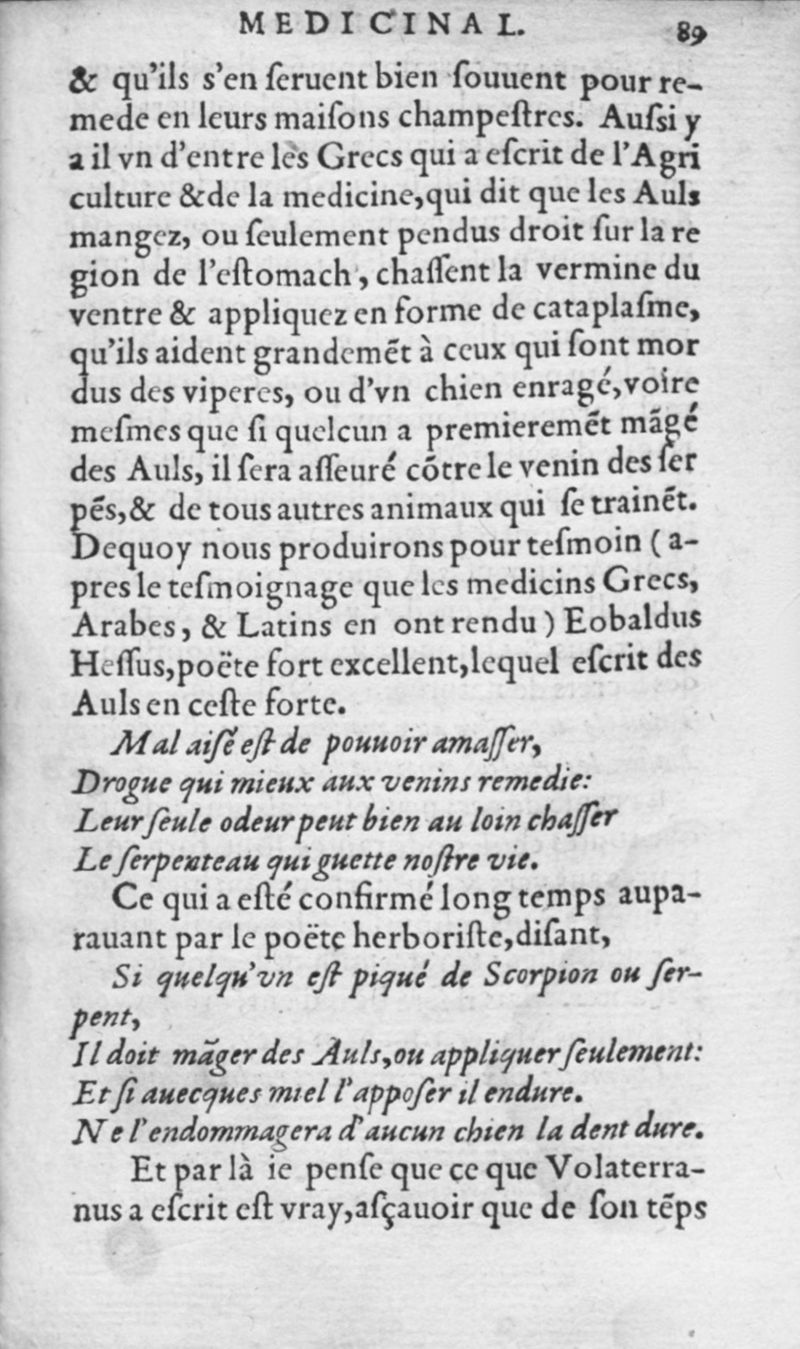 MEDICINAL. 89
& qu’ils s’en ſeruent bien ſouuent pour re-
mede en leurs maiſons champeſtres. Auſsi y
a il vn d’entre les Grecs qui a eſcrit de l’Agri
culture &de la medicine,qui dit que les Auls
mangez, ou ſeulement pendus droit ſur la re
gion de l’eſtomach , chaſſent la vermine du
ventre & appliquez en forme de cataplaſme,
qu’ils aident grandemẽt à ceux qui ſont mor
dus des viperes, ou d’vn chien enragé,voire
meſmes que ſi quelcun a premieremẽt mãgé
des Auls, il ſera aſſeuré cõtre le venin des ſer
pẽs,& de tous autres animaux qui ſe trainẽt.
Dequoy nous produirons pour teſmoin ( a-
pres le teſmoignage que les medicins Grecs,
Arabes, & Latins en ont rendu ) Eobaldus
Heſſus,poëte fort excellent,lequel eſcrit des
Auls en ceſte ſorte.
Mal aiſé eſt de pouuoir amaſſer,
Drogue qui mieux aux venins remedie:
Leur ſeule odeur peut bien au loin chaſſer
Le ſerpenteau qui guette noſtre vie.
Ce qui a eſté confirmé long temps aupa-
rauant par le poëte herboriſte,diſant,
Si quelqu’vn eſt piqué de Scorpion ou ſer-
pent,
Il doit mãger des Auls,ou appliquer ſeulement:
Et ſi auecques miel l’appoſer il endure.
Ne l’endommagera d’aucun chien la dent dure.
Et par là ie penſe que ce que Volaterra-
nus a eſcrit eſt vray,aſçauoir que de ſon tẽps